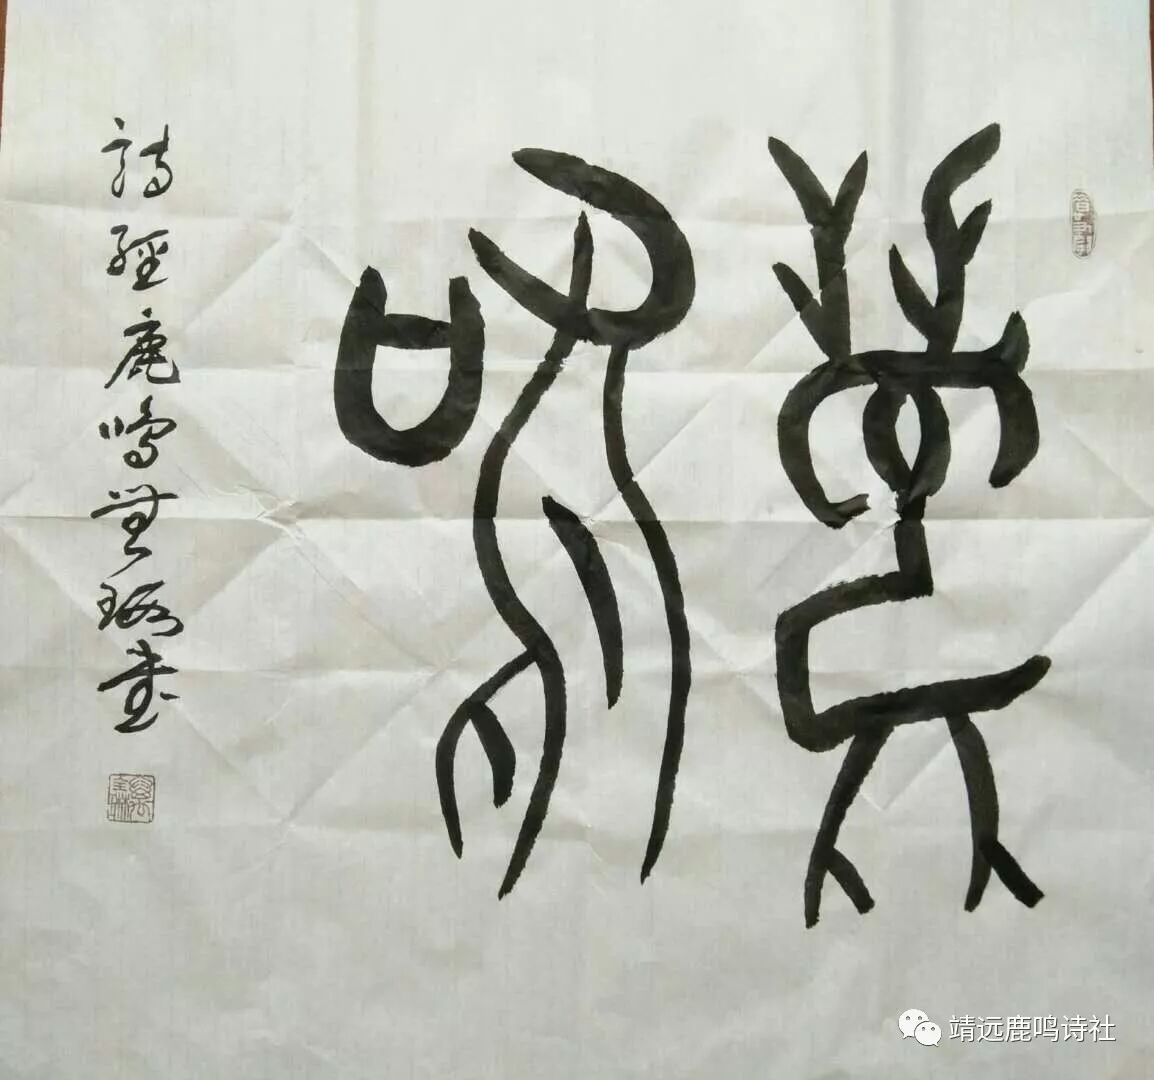 鹿鳴
詩經鹿鳴書
靖远鹿鸣诗社